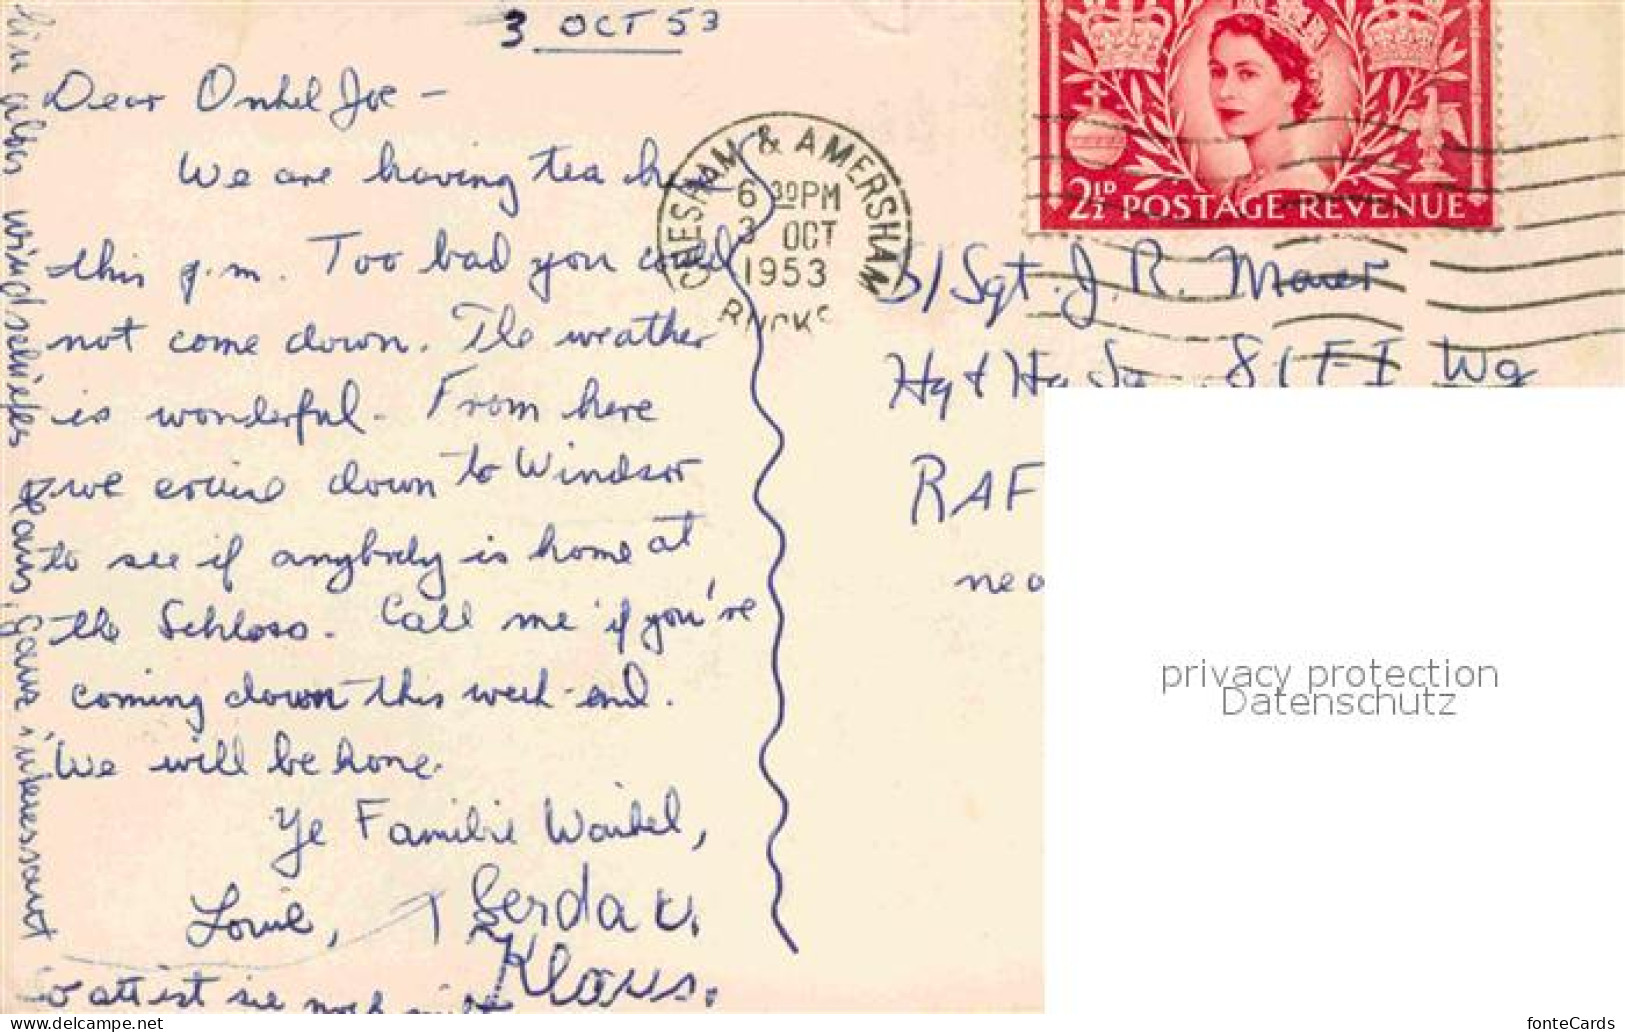 3 OCT 53
Dear Onkel Joe -
We are having tea here
this p.m. Too bad you could
not come down. The weather
is wonderful. From here
we cruise down to Windsor
to see if anybody is home at
the Schloss. Call me if you're
coming down this week-end.
We will be home.
Ye Familie Waibel,
Louie, Gerda u.
Klaus.
So alt ist sie noch nicht
ein altes windschiefes Haus, ganz interessant
CHESHAM & AMERSHAM
6 30PM
3 OCT
1953
BUCKS
2½D POSTAGE REVENUE
S/Sgt. J. R. Maier
Hq & Hq Sq 81 FI Wg
RAF
nea
privacy protection
Datenschutz
https://www.delcampe.net
fonteCards